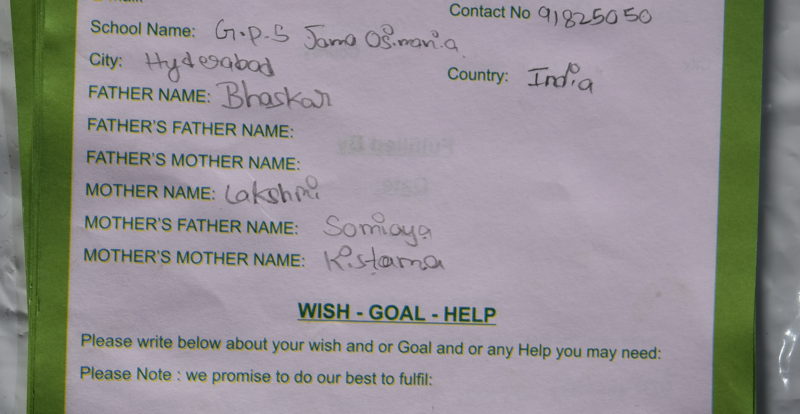 Contact No 91825050
School Name: G.P.S Jama Osmania
City: Hyderabad Country: India
FATHER NAME: Bhaskar
FATHER'S FATHER NAME:
FATHER'S MOTHER NAME:
MOTHER NAME: Lakshmi
MOTHER'S FATHER NAME: Somiaya
MOTHER'S MOTHER NAME: Kistama
WISH - GOAL - HELP
Please write below about your wish and or Goal and or any Help you may need:
Please Note : we promise to do our best to fulfil: